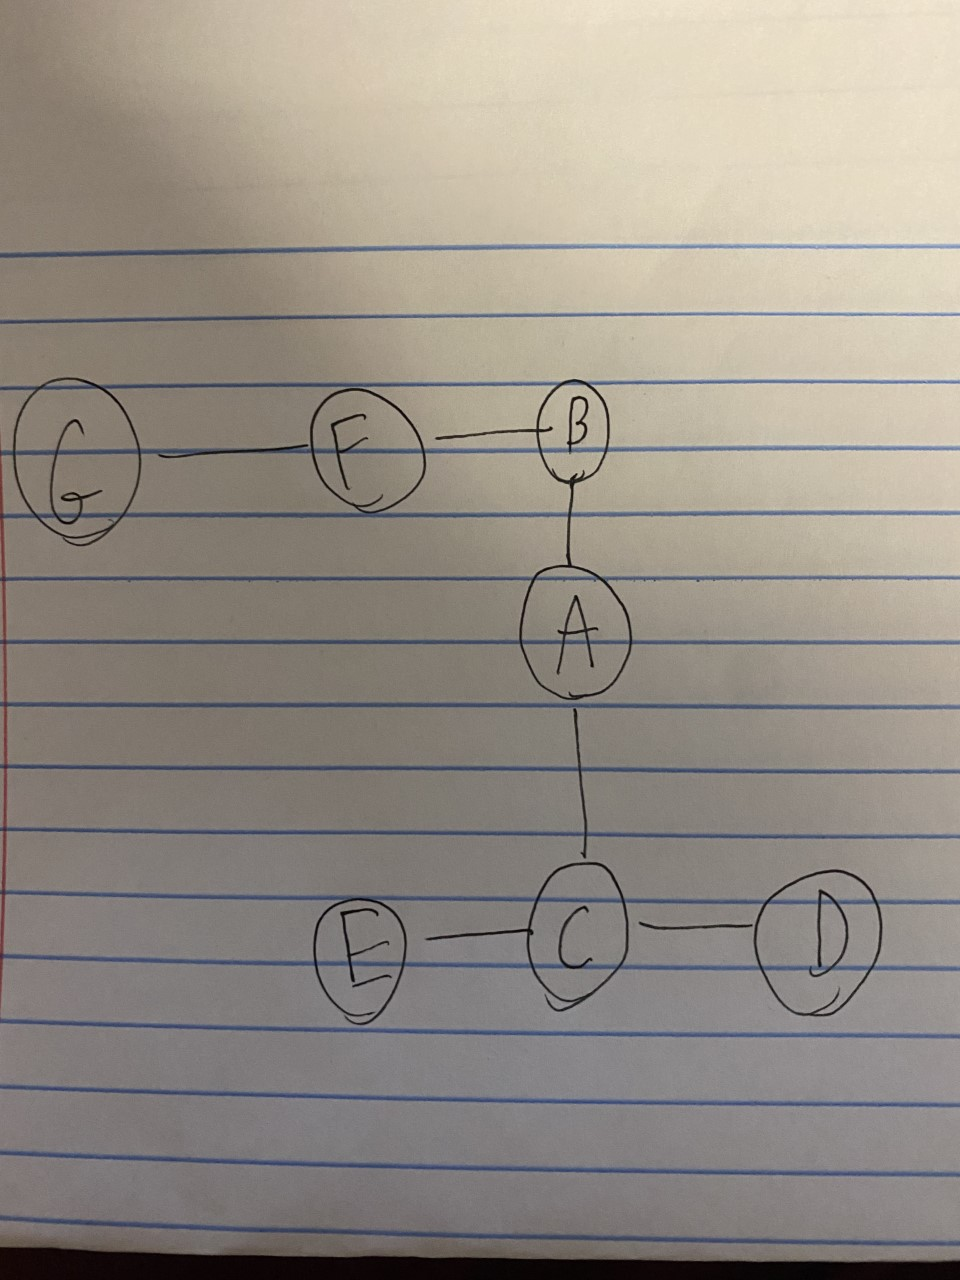 G F B
A
E C D